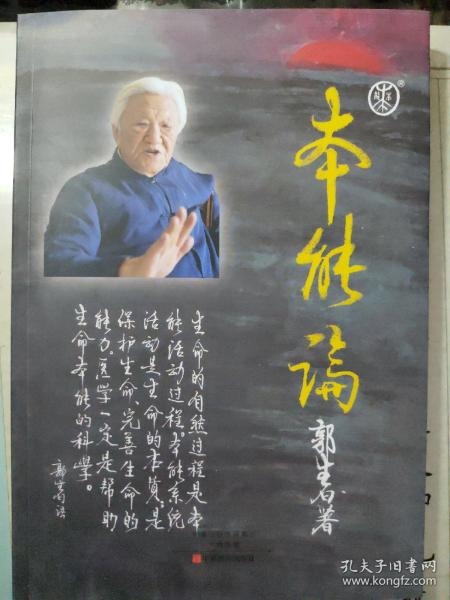 本能论
郭生白著
生命的自然过程是本
能活动过程。本能系统
活动是生命的本质；是
保护生命、完善生命的
能力。医学一定是帮助
生命本能的科学。
郭生白语
®
孔夫子旧书网